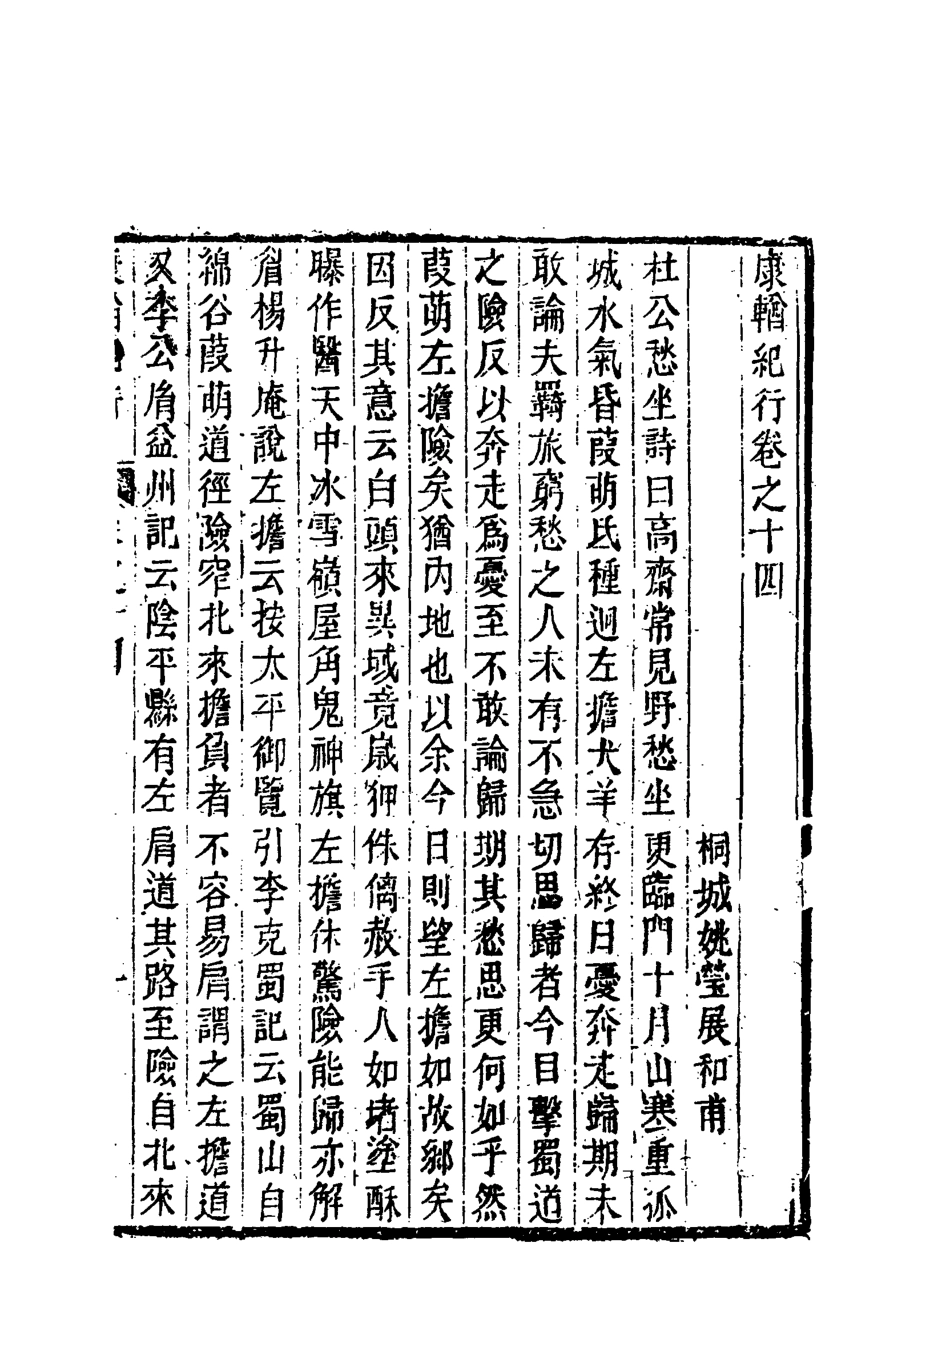 康輶紀行卷之十四
桐城姚瑩展和甫
杜公愁坐詩曰高齋常見野愁坐更臨門十月山寒重孤
城水氣昏葭萌氐種迥左擔犬羊存終日憂奔走歸期未
敢論夫羇旅窮愁之人未有不急切思歸者今目擊蜀道
之險反以奔走爲憂至不敢論歸期其愁思更何如乎然
葭萌左擔險矣猶內地也以余今日則望左擔如故鄉矣
因反其意云白頭來異域竟歲狎侏㒧赦手人如堵塗酥
曝作醫天中冰雪嶺屋角鬼神旗左擔休驚險能歸亦解
眉楊升庵說左擔云按太平御覽引李克蜀記云蜀山自
綿谷葭萌道徑險窄北來擔負者不容易肩謂之左擔道
又李公胤益州記云陰平縣有左肩道其路至險自北來